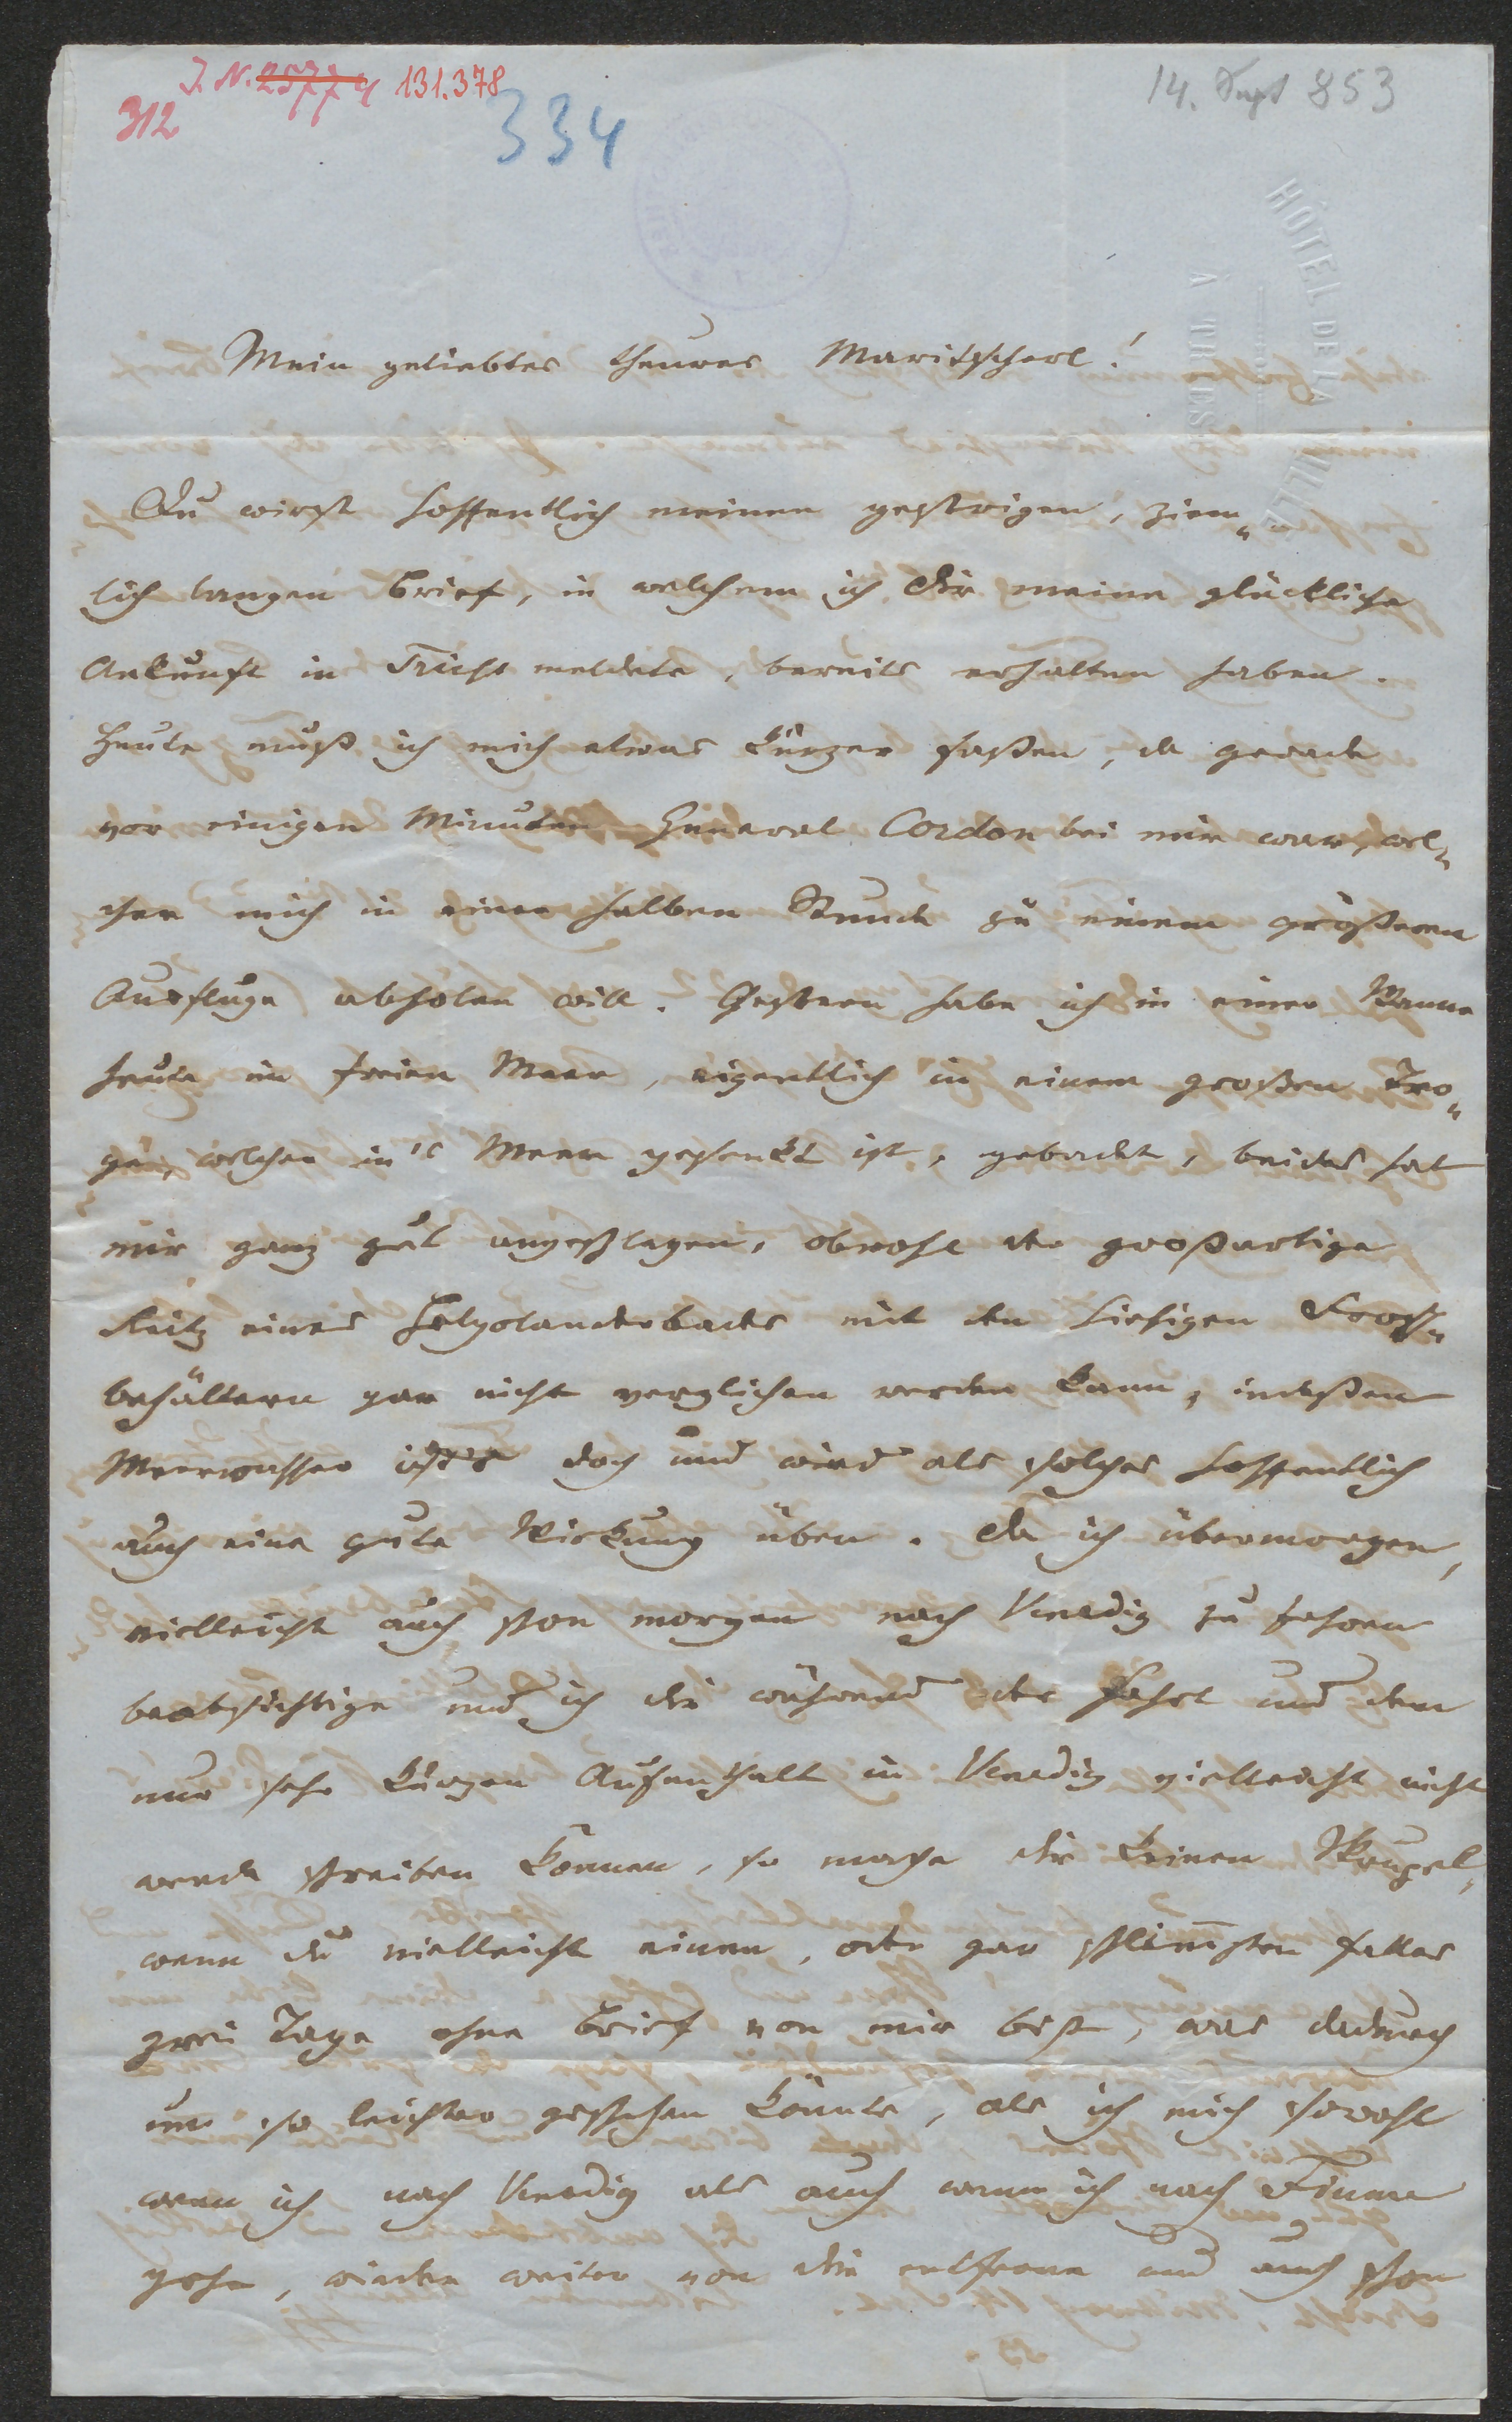 J. N. 25774 131.378
312
334
14. Sept 853
HÔTEL DE LA VILLE
À TRIESTE
Mein geliebtes theures Maritscherl!
Du wirst hoffentlich meinen gestrigen, ziem„
lich langen Brief, in welchem ich Dir meine glückliche
Ankunft in Triest meldete, bereits erhalten haben.
Heute muß ich mich etwas kürzer faßen, da gerade
vor einigen Minuten General Cordon bei mir war, wel„
cher mich in einer halben Stunde zu einem größeren
Ausfluge abholen will. Gestern habe ich in einer Wanne
heute im freien Meer, eigentlich in einem großen Tro„
ge, welcher in's Meer gesenkt ist, gebadet, beides hat
mir ganz gut angeschlagen, obwohl der großartige
Reitz eines Helgolanderbades mit den hiesigen Frosch„
behältern gar nicht verglichen werden kann, indeßen
Meerwasser ists doch und wird als solches hoffentlich
auch eine gute Wirkung üben. Da ich übermorgen,
vielleicht auch schon morgen nach Venedig zu fahren
beabsichtige und ich dir während der Fahrt und dem
nur sehr kurzen Aufenthalt in Venedig vielleicht nicht
werde schreiben können, so mache dir keinen Skrupel,
wenn du vielleicht einen, oder gar schlim̅sten Falles
zwei Tage ohne Brief von mir bist, was dadurch
um so leichter geschehen könnte, als ich mich sowohl
wenn ich nach Venedig als auch wenn ich nach Fiume
gehe, wieder weiter von dir entferne und auch schon